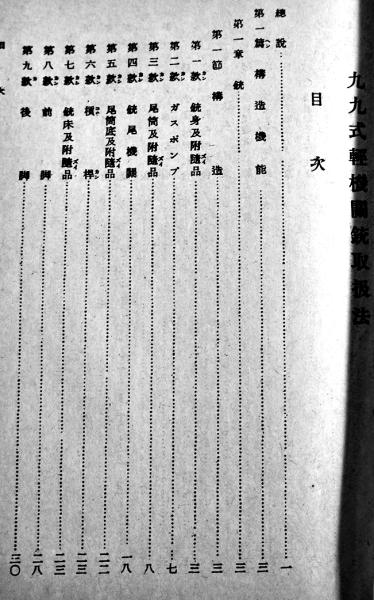 九九式輕機關銃取扱法
目次
總說……一
第一篇 構造機能……三
第一章 銃……三
第一節 構造……三
第一款 銃身及附隨品……三
第二款 ガスポンプ……七
第三款 尾筒及附隨品……八
第四款 銃尾機關……一八
第五款 尾筒底及附隨品……二二
第六款 槓桿……二三
第七款 銃床及附隨品……二三
第八款 前脚……二八
第九款 後脚……三〇